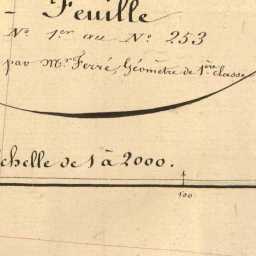 - Feuille
N° 1er au N° 253
par Mr Ferré, Géomètre de 1ère classe
chelle de 1 à 2000.
100